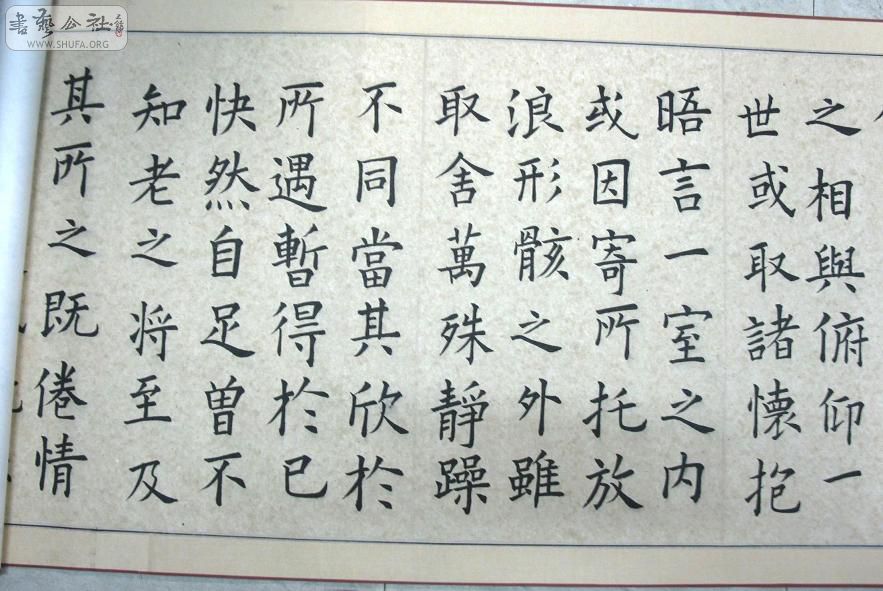 之相與俯仰一
世或取諸懷抱
晤言一室之內
或因寄所托放
浪形骸之外雖
取舍萬殊靜躁
不同當其欣於
所遇暫得於已
快然自足曾不
知老之将至及
其所之既倦情
書藝公社
WWW.SHUFA.ORG